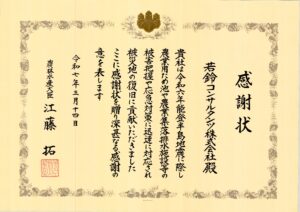 感謝状
若鈴コンサルタンツ株式会社殿
貴社は令和六年能登半島地震に際し
農業用ため池や農業集落排水施設等の
被害把握や応急対策に迅速に対応され
被災地の復旧に貢献いただきました
ここに感謝状を贈り深甚なる感謝の
意を表します
令和七年三月十四日
農林水産大臣 江藤 拓